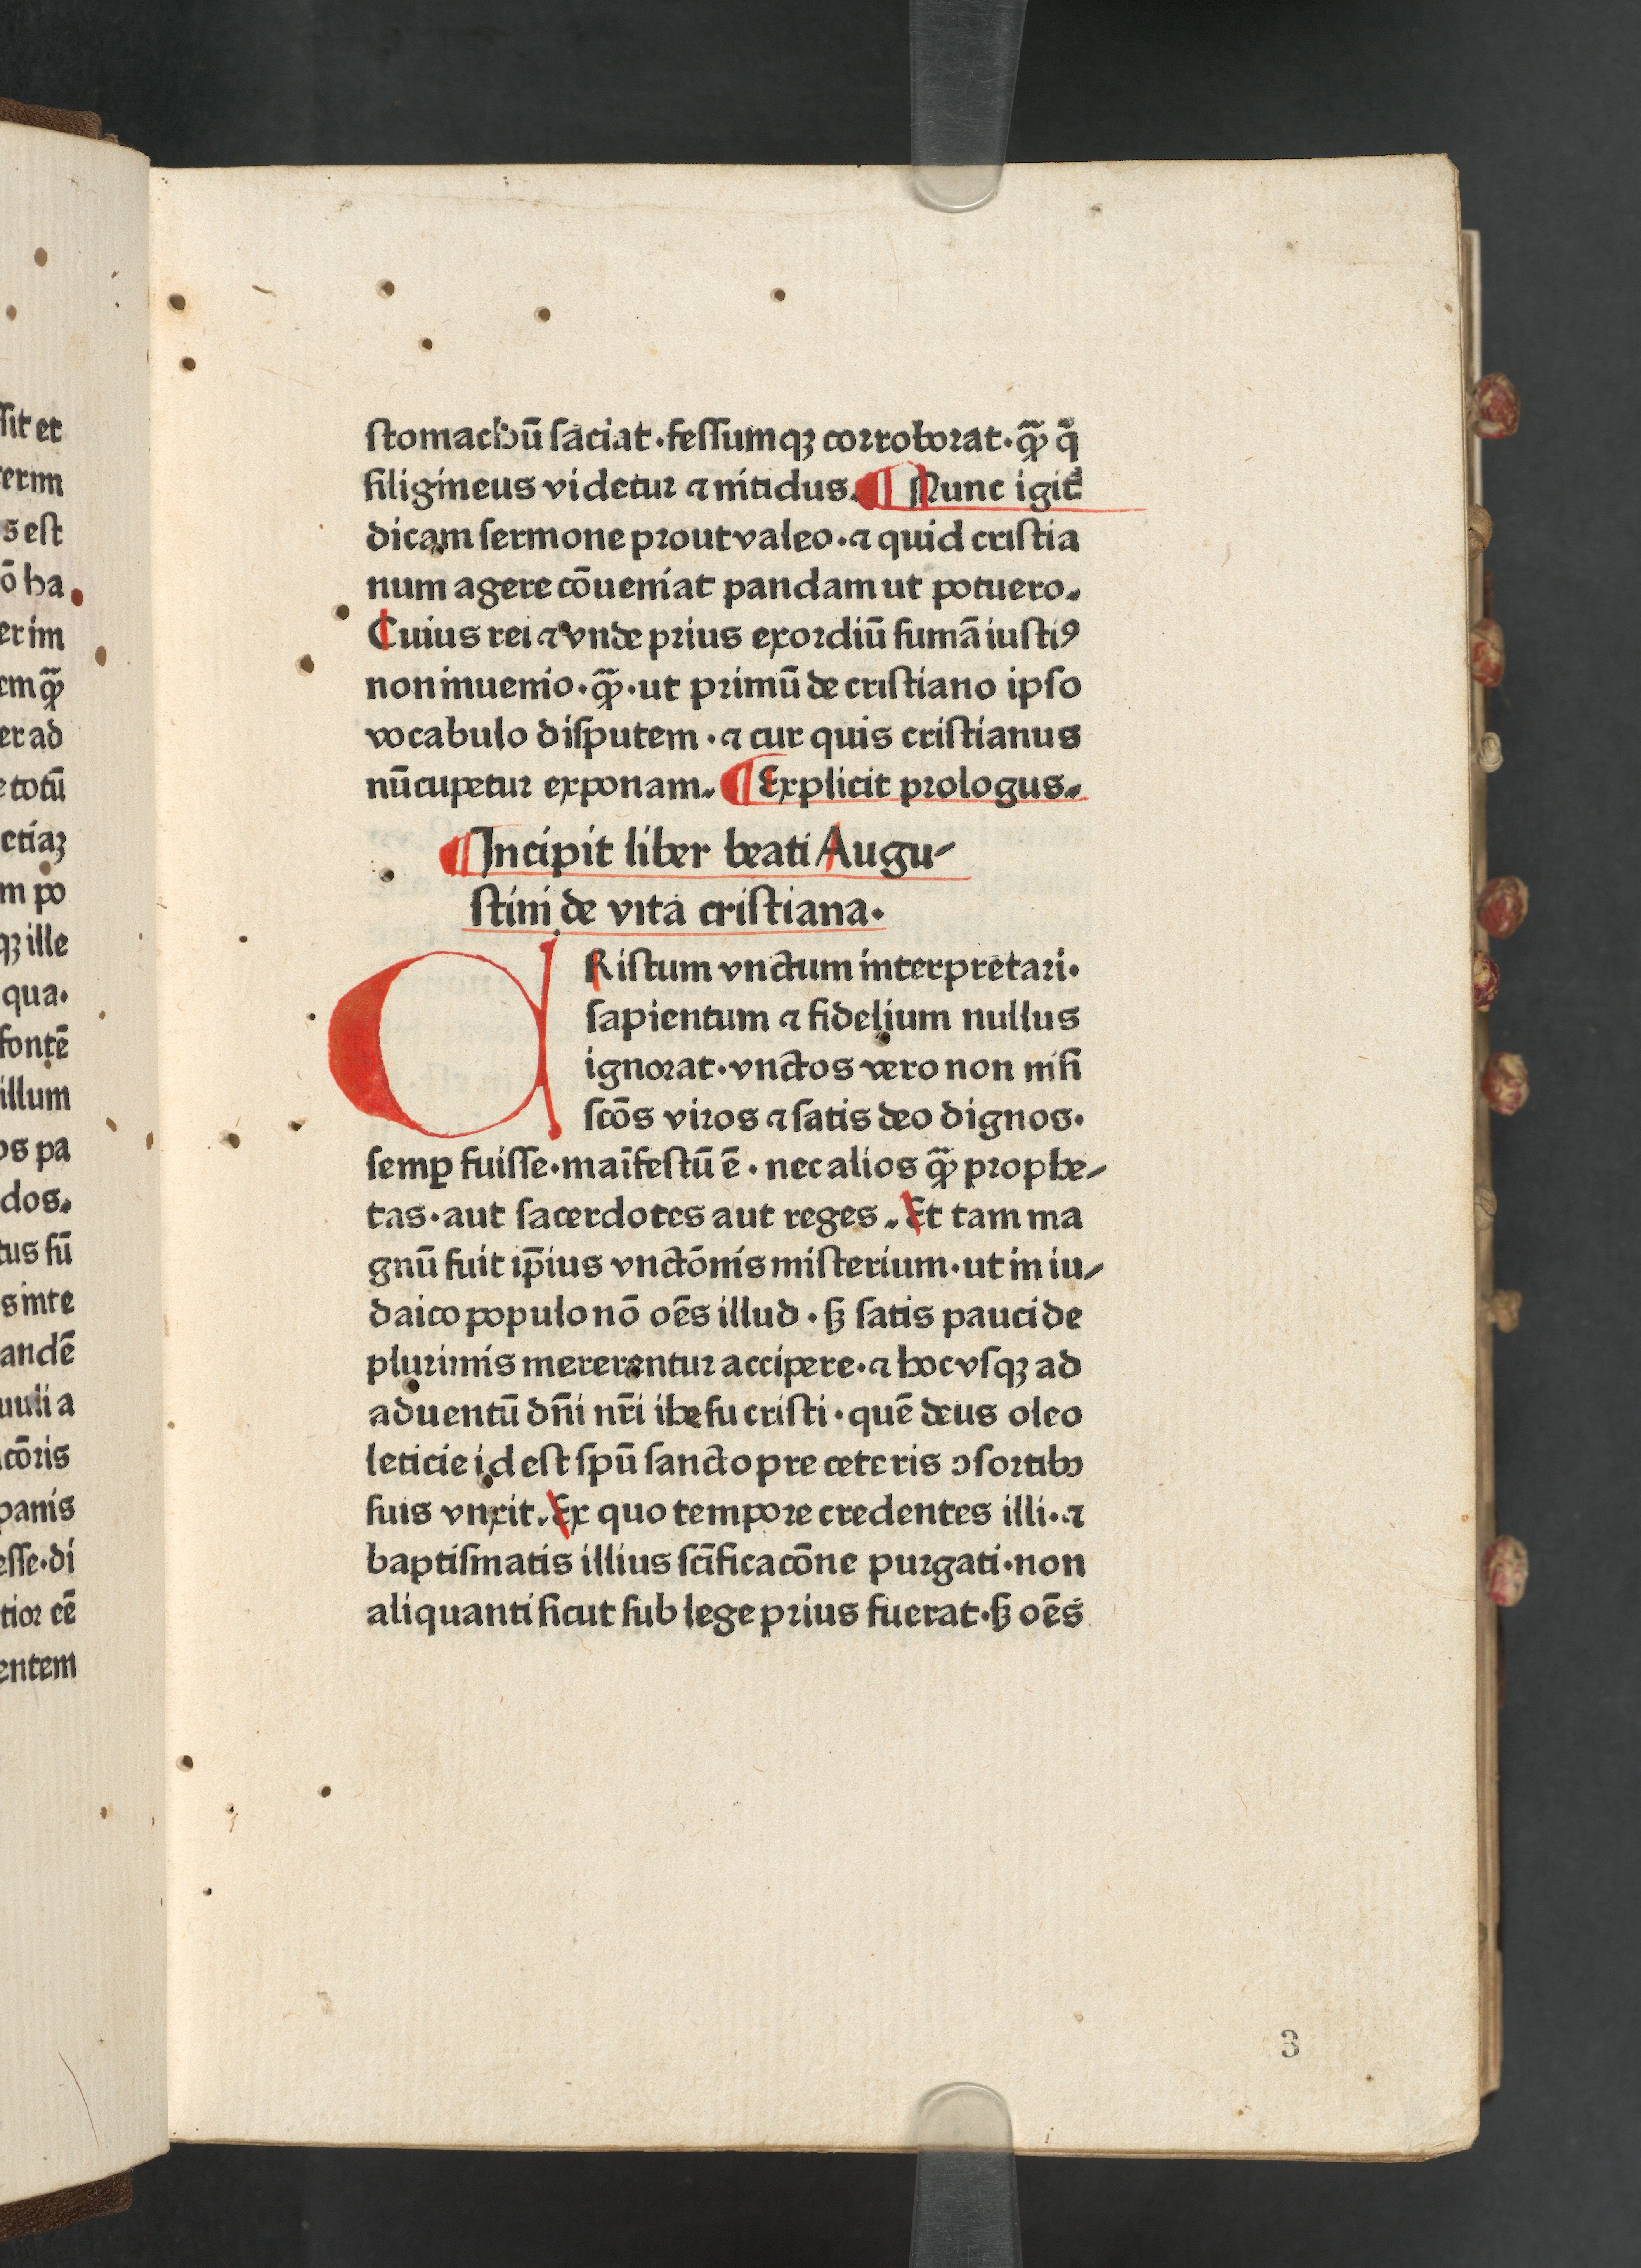 ſtomachū ſaciat·feſſumqꝫ corroborat·ꝙ̄ q̄
ſiligineus videtur ⁊ nitidus. ¶ Nunc igit̄
dicam ſermone prout valeo·⁊ quid criſtia
num agere cōueniat pandam ut potuero.
Cuius rei ⁊ vnde prius exordiū ſumā iuſtiꝰ
non inuenio·ꝙ̄·ut primū de criſtiano ipſo
vocabulo diſputem·⁊ cur quis criſtianus
nūcupetur exponam. ¶ Explicit prologus.
¶ Incipit liber beati Augu-
ſtini de vita criſtiana.
C Riſtum vnctum interpretari·
ſapientum ⁊ fidelium nullus
ignorat·vnctos vero non niſi
ſcōs viros ⁊ ſatis deo dignos·
ſemꝑ fuiſſe·maīfeſtū ē·nec alios ꝙ̄ prophe-
tas·aut ſacerdotes aut reges. Et tam ma
gnū fuit ip̄ius vnctōnis miſterium·ut in iu-
daico populo nō oēs illud·ſꝫ ſatis pauci de
plurimis mererentur accipere·⁊ hoc vſqꝫ ad
aduentū dn̄i nr̄i iheſu criſti·quē deus oleo
leticie id eſt ſpū ſancto pre ceteris ↄſortibꝫ
ſuis vnxit. Ex quo tempore credentes illi·⁊
baptiſmatis illius ſcīficacōne purgati·non
aliquanti ſicut ſub lege prius fuerat·ſꝫ oēs
3